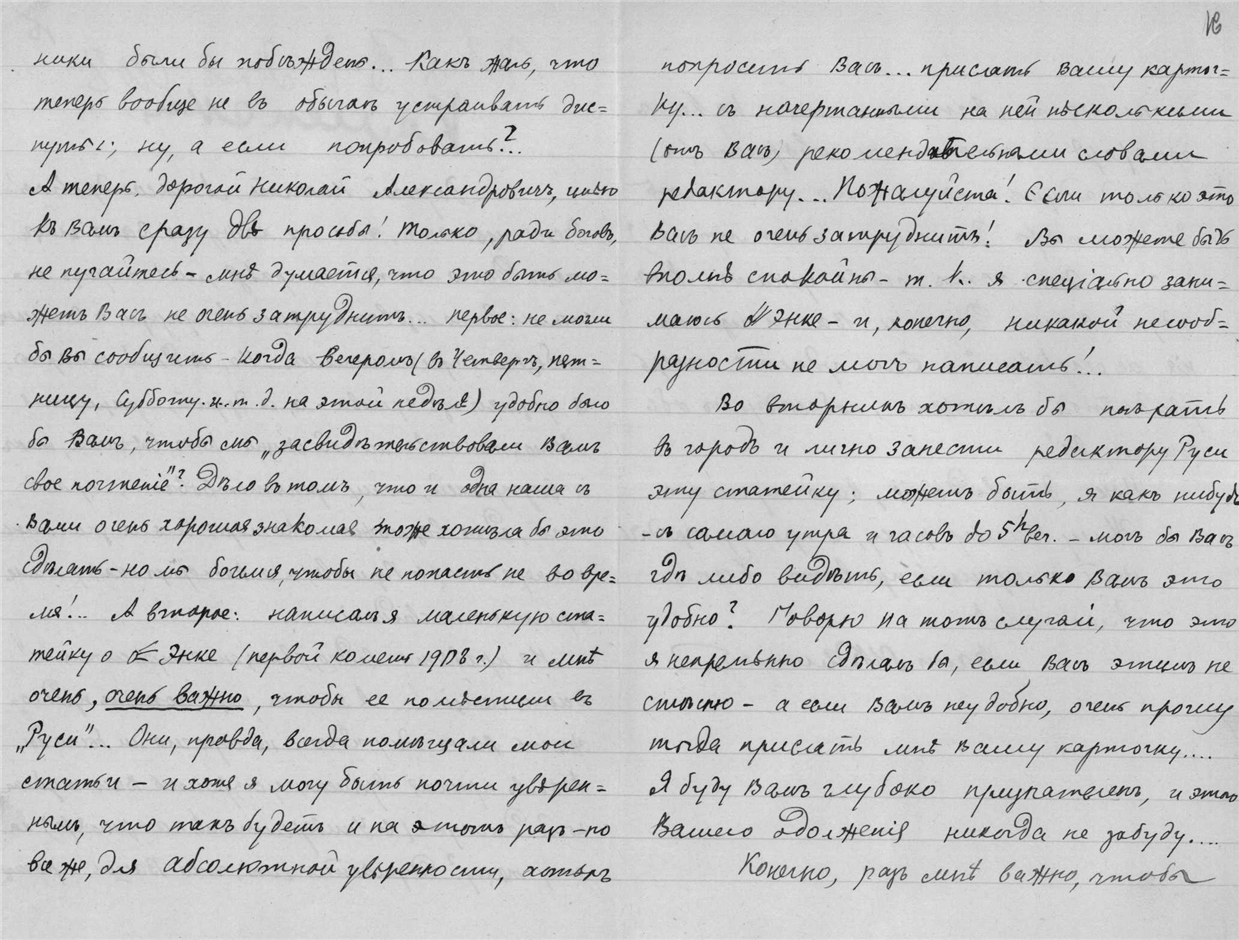 ники были бы побѣждены... Какъ жаль, что
теперь вообще не въ обычаѣ устраивать дис=
путы; ну, а если попробовать?..
А теперь, дорогой Николай Александровичъ, имѣю
къ Вамъ сразу двѣ просьбы! Только, ради боговъ,
не пугайтесь – мнѣ думается, что это быть мо=
жетъ Васъ не очень затруднитъ... первое: не могли
бы Вы сообщить – когда вечеромъ (въ Четвергъ, пят=
ницу, Субботу.и.т.д. на этой недѣлѣ) удобно было
бы Вамъ, чтобы мы „засвидѣтельствовали Вамъ
свое почтенiе"? Дѣло въ томъ, что и одна наша съ
Вами очень хорошая знакомая тоже хотѣла бы это
сдѣлать – но мы боимся, чтобы не попасть не во вре=
мя!.. А второе: написалъ я маленькую ста=
тейку о Энке (первой кометѣ 1908 г.) и мнѣ
очень, очень важно, чтобы ее помѣстили въ
„Руси"... Они, правда, всегда помѣщали мои
статьи – и хотя я могу быть почти увѣрен=
нымъ, что такъ будетъ и на этотъ разъ – но
все же, для абсолютной увѣренности, хотѣлъ
16
попросить Васъ... прислать Вашу карточ=
ку... съ начертанными на ней нѣсколькими
(отъ Васъ) рекомендательными словами
редактору... Пожалуйста! Если только это
Васъ не очень затруднитъ! Вы можете быть
вполнѣ спокойны – т. к. я спецiально зани=
маюсь Энке – и, конечно, никакой несооб=
разности не могъ написать!..
Во вторникъ хотѣлъ бы поѣхать
въ городъ и лично занести редактору Руси
эту статейку; можетъ быть, я какъ нибудь
– съ самаго утра и часовъ до 5h веч. – могъ бы Васъ
гдѣ либо видѣть, если только Вамъ это
удобно? Говорю на тотъ случай, что это
я непремѣнно сдѣлалъ бы, если Васъ этимъ не
стѣсню – а если Вамъ неудобно, очень прошу
тогда прислать мнѣ Вашу карточку....
Я буду Вамъ глубоко признателенъ, и этого
Вашего одолженiя никогда не забуду....
Конечно, разъ мнѣ важно, чтобы